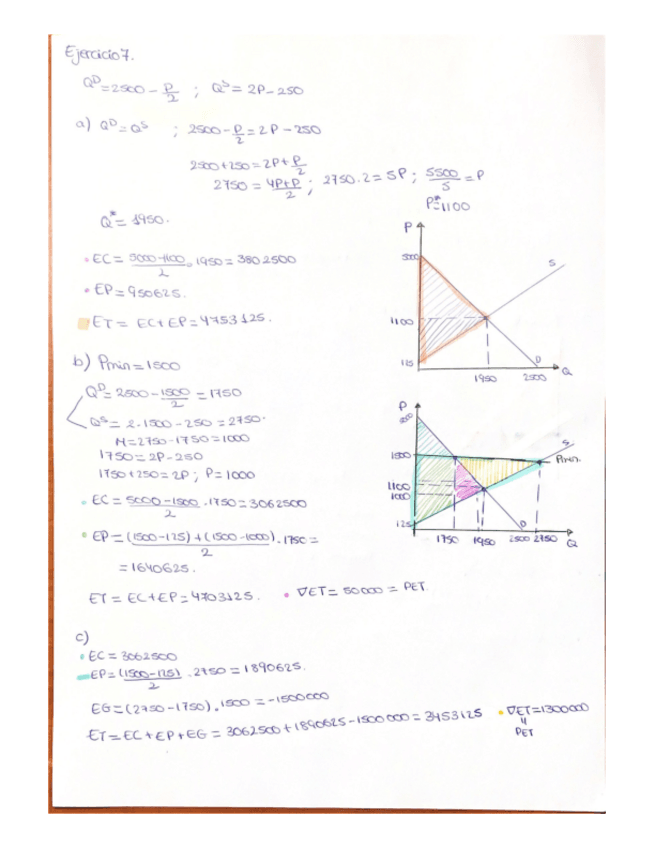 Ejercicio 7.
Q^D = 2500 - P/2 ; Q^S = 2P - 250
a) Q^D = Q^S ; 2500 - P/2 = 2P - 250
2500 + 250 = 2P + P/2
2750 = (4P+P)/2 ; 2750 · 2 = 5P ; 5500/5 = P
P* = 1100
Q* = 1950.
• EC = (5000-1100)/2 · 1950 = 3802500
• EP = 950625.
ET = EC + EP = 4753125.
P
5000
S
1100
125
D
1950 2500 Q
b) Pmin = 1500
Q^D = 2500 - 1500/2 = 1750
Q^S = 2 · 1500 - 250 = 2750.
N = 2750 - 1750 = 1000
1750 = 2P - 250
1750 + 250 = 2P ; P = 1000
• EC = (5000-1500)/2 · 1750 = 3062500
• EP = ((1500-125) + (1500-1000))/2 · 1750 =
= 1640625.
ET = EC + EP = 4703125. • ∇ET = 50000 = PET.
P
5000
S
1500
Pmin.
1100
1000
125
D
1750 1950 2500 2750 Q
c)
• EC = 3062500
EP = (1500-125)/2 · 2750 = 1890625.
EG = (2750 - 1750) · 1500 = -1500000
ET = EC + EP + EG = 3062500 + 1890625 - 1500000 = 3453125 • ∇ET = 1300000
"
PET